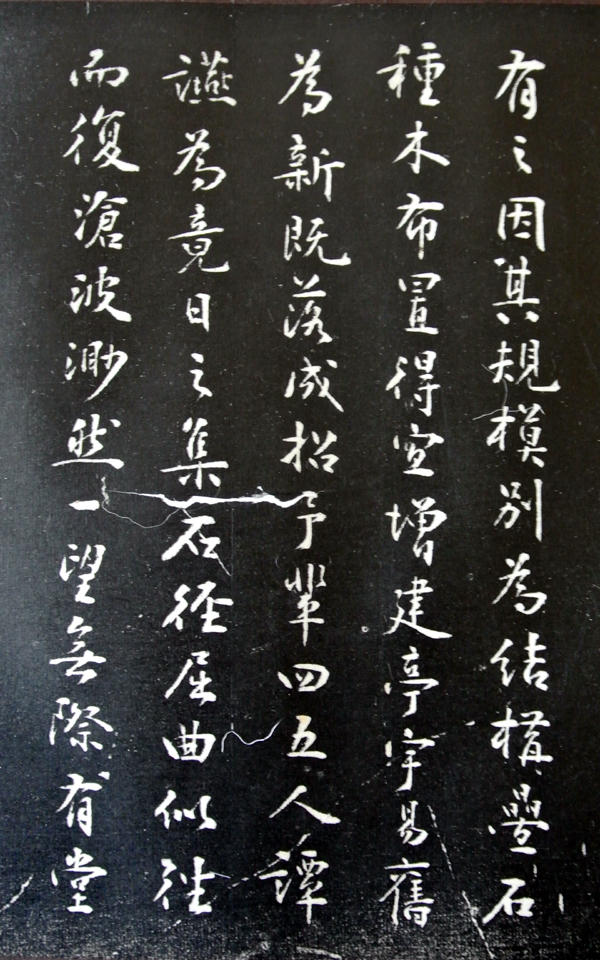 有之因其規模別為結構疊石
種木布置得宜增建亭宇易舊
為新既落成招予輩四五人譚
讌為竟日之集石徑屈曲似往
而復滄波渺然一望無際有堂